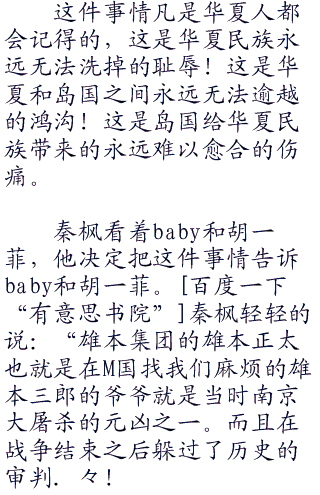 这件事情凡是华夏人都
会记得的，这是华夏民族永
远无法洗掉的耻辱！这是华
夏和岛国之间永远无法逾越
的鸿沟！这是岛国给华夏民
族带来的永远难以愈合的伤
痛。
秦枫看着baby和胡一
菲，他决定把这件事情告诉
baby和胡一菲。[百度一下
“有意思书院”]秦枫轻轻的
说：“雄本集团的雄本正太
也就是在M国找我们麻烦的雄
本三郎的爷爷就是当时南京
大屠杀的元凶之一。而且在
战争结束之后躲过了历史的
审判．々！